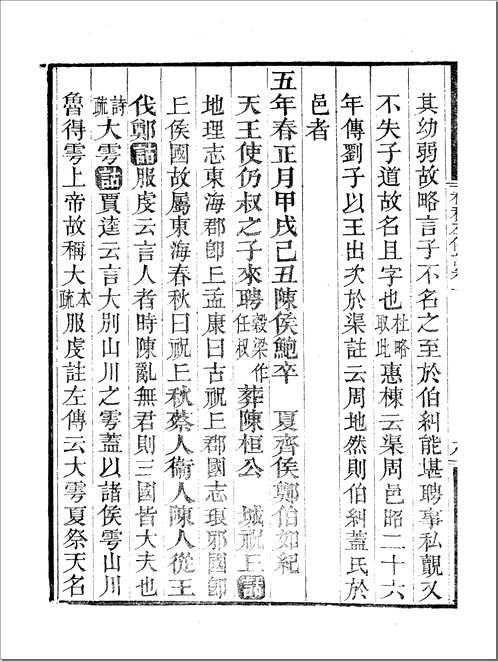 其幼弱故略言子不名之至於伯糾能堪聘事私覿又
不失子道故名且字也杜略取此惠棟云渠周邑昭二十六
年傳劉子以王出次於渠註云周地然則伯糾蓋氏於
邑者
五年春正月甲戌己丑陳侯鮑卒　夏齊侯鄭伯如紀
天王使仍叔之子來聘穀梁作任叔　葬陳桓公　城祝丘詁
地理志東海郡卽丘孟康曰古祝丘郡國志琅邪國卽
丘侯國故屬東海春秋曰祝丘　秋蔡人衞人陳人從王
伐鄭詁服虔云言人者時陳亂無君則三國皆大夫也
詩疏　大雩詁賈逵云言大別山川之雩蓋以諸侯雩山川
魯得雩上帝故稱大本疏服虔註左傳云大雩夏祭天名